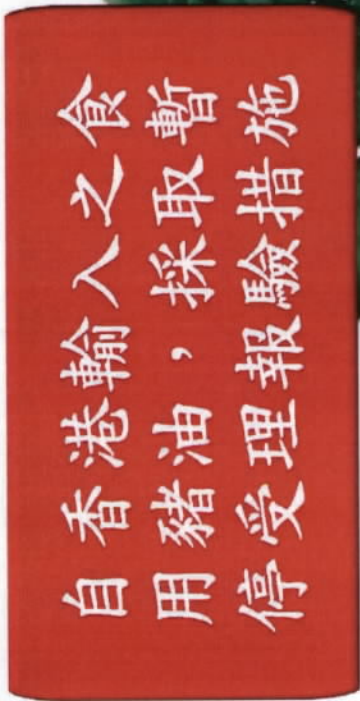 自香港輸入之食
用豬油，採取暫
停受理報驗措施